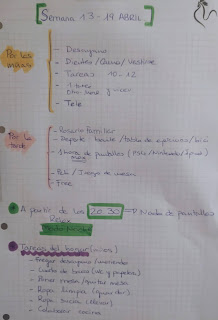 Semana 13-19 ABRIL
Por las mañanas
- Desayuno
- Dientes / Cama / Vestirse
- Tareas 10-12
- 1 hora
- Tele
Por la tarde
- Rosario Familiar
- Deporte: baile / tabla de ejercicios / bici
- 1 hora de pantallas
- Peli / Juego de mesa
A partir de las 20:30 => Nada de pantallas
Relax
Tareas del hogar
- Fregar desayuno / meriendas
- Cuarto de baño (WC y papelera)
- Poner mesa / quitar mesa
- Ropa limpia (guardar)
- Ropa sucia
- Colaborar cocina